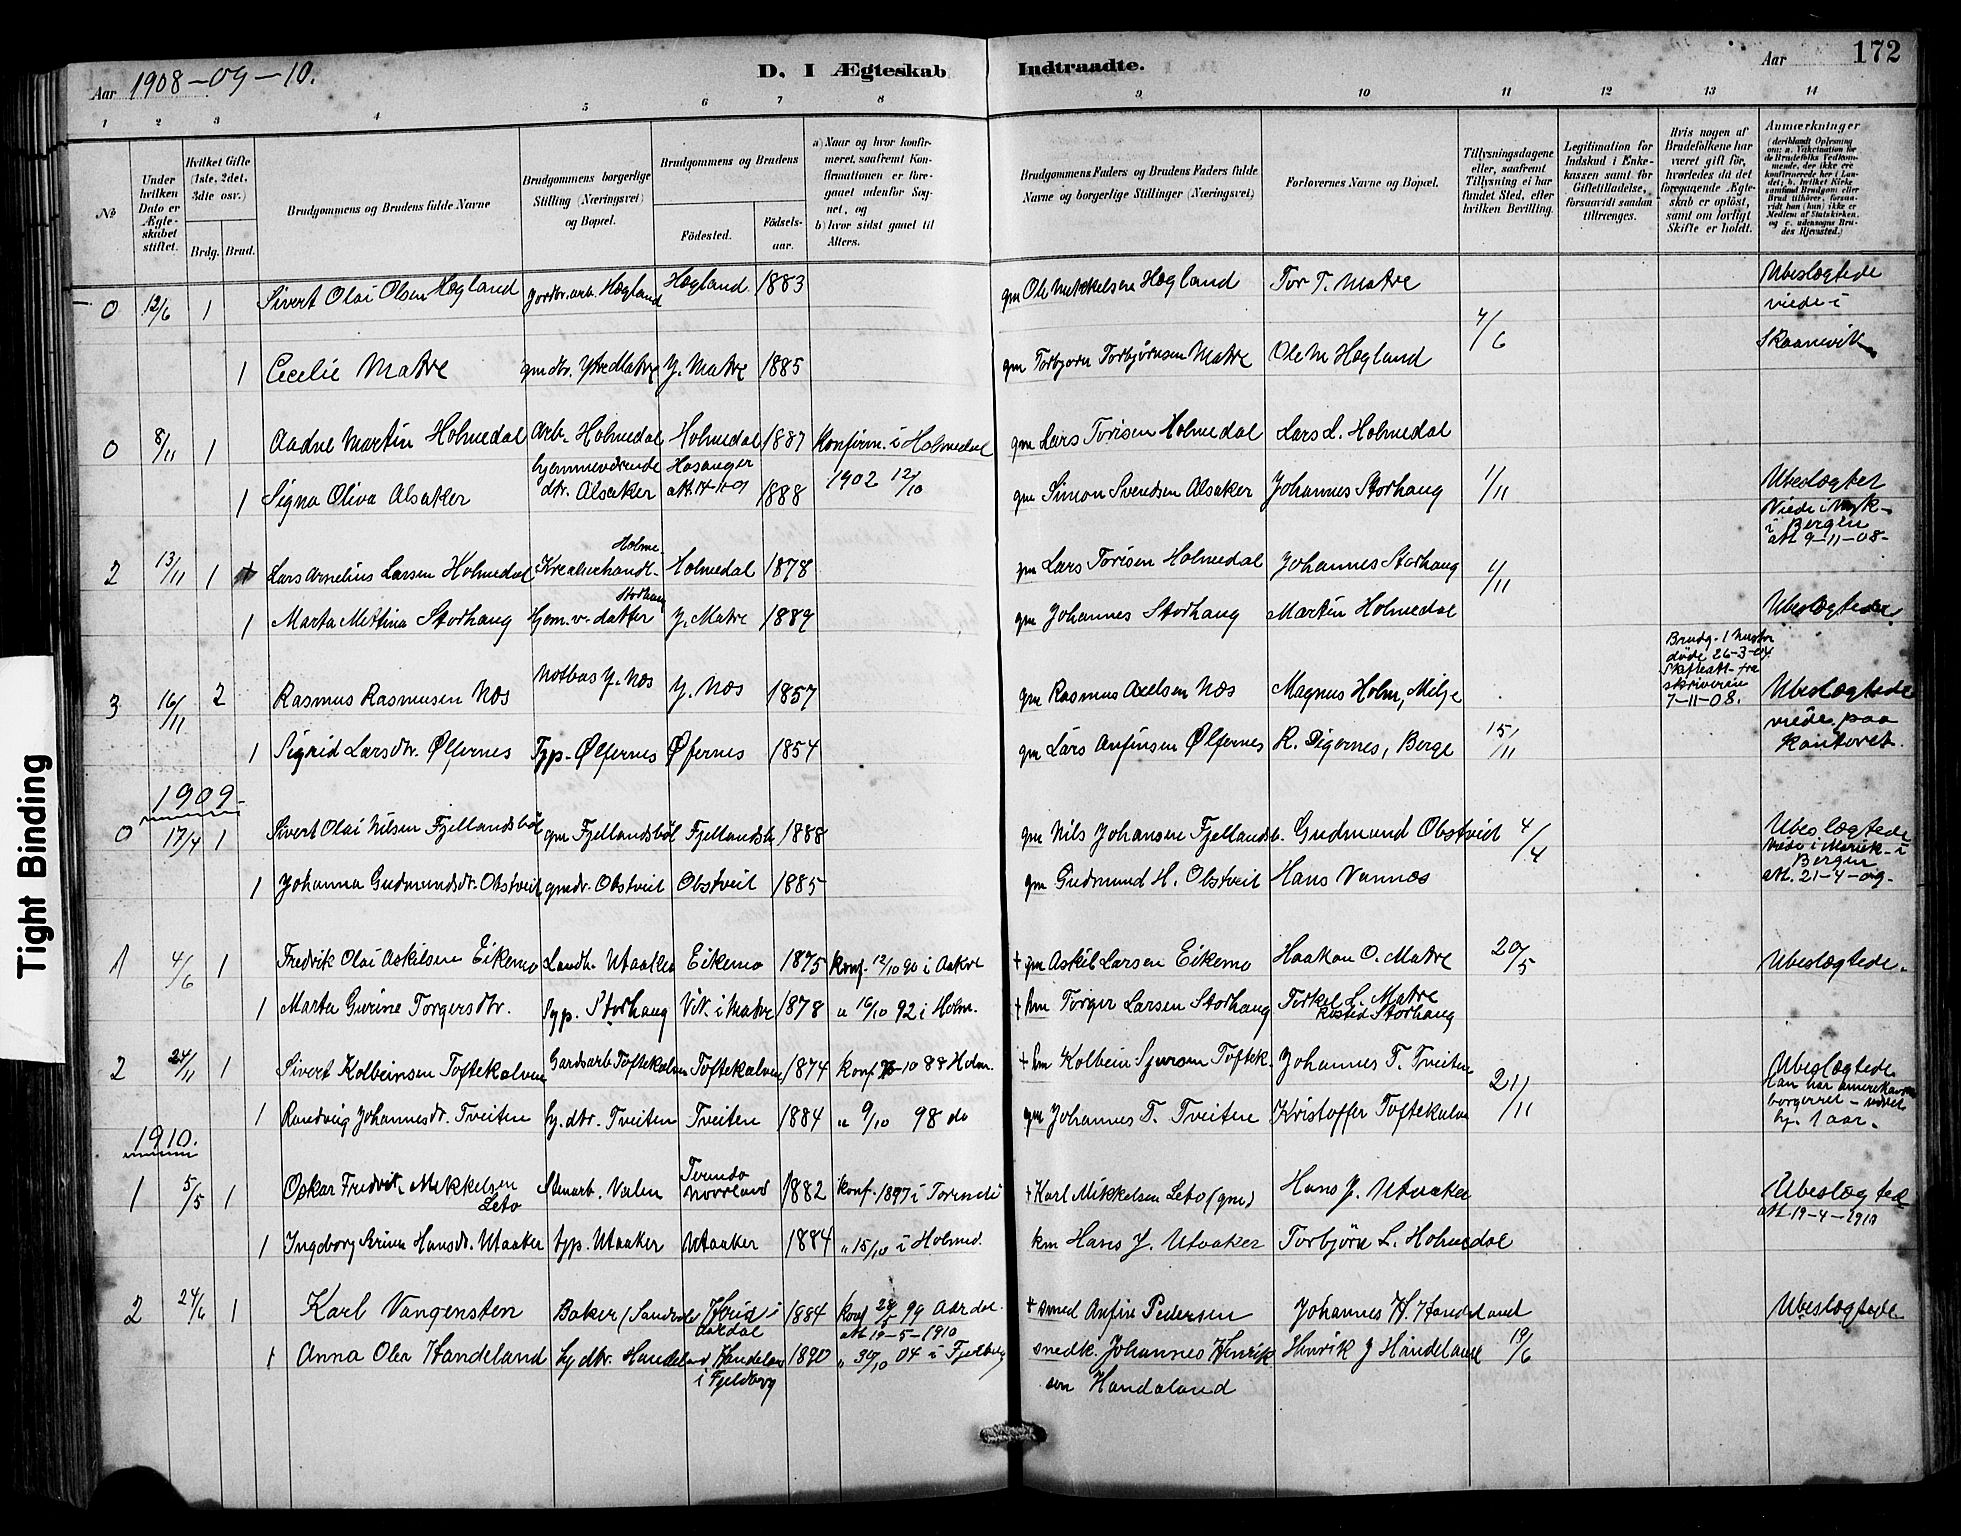 Aar 1908-09-10. D. I Ægteskab Indtraadte. Aar 172
1 2 3 4 5 6 7 8 9 10 11 12 13 14
№
Under hvilken Dato er Ægteskabet stiftet.
Hvilket Gifte (1ste, 2det, 3die osv.)
Brdg. Brud.
Brudgommens og Brudens fulde Navne
Brudgommens borgerlige Stilling (Næringsvei) og Bopæl.
Brudgommens og Brudens
Fødested. Fødselsaar.
a) Naar og hvor konfirmeret, saafremt Konfirmationen er foregaaet udenfor Sognet, og
b) hvor sidst gaaet til Alters.
Brudgommens Faders og Brudens Faders fulde Navne og borgerlige Stillinger (Næringsvei)
Forlovernes Navne og Bopæl.
Tillysningsdagene eller, saafremt Tillysning ei har fundet Sted, efter hvilken Bevilling.
Legitimation for Indskud i Enkekassen samt for Giftetilladelse, forsaavidt saadan tiltrænges.
Hvis nogen af Brudefolkene har været gift før, hvorledes da det foregaaende Ægteskab er opløst, samt om lovligt Skifte er holdt.
Anmærkninger
0 12/6 1 Sivert Olai Olsen Høgland Jordbr.arb. Høgland Høgland 1883 gm Ole Mikkelsen Høgland Tor T. Matre 4/6 Ubeslægtede
viede i
Skaanevik
1 Cecilie Matre gm dtr. Ytre Matre Y. Matre 1885 gm Torbjørn Torbjørnsen Matre Ole M Høgland
0 8/11 1 Aadne Martin Holmedal Arb. Holmedal Holmedal 1887 Konfirm. i Holmedal gm Lars Torisen Holmedal Lars L. Holmedal
1 Signa Oliva Alsaker hjemmeværende dtr. Alsaker Hosanger 1888 1902 12/10 gm Simon Svendsen Alsaker Johannes Storhaug 1/11 Ubeslægtet
Viede i
i Bergen
att. 9-11-08-
2 13/11 1 Lars Arnelius Larsen Holmedal Kreaturhandl. Holme- Holmedal 1878 gm Lars Torisen Holmedal Johannes Storhaug 1/11
1 Marta Mettina Storhaug Hjem.v. datter Storhaug Y. Matre 1889 gm Johannes Storhaug Martin Holmedal Ubeslægtede
3 16/11 2 Rasmus Rasmusen Næs Notbas Y. Næs Y. Næs 1857 gm Rasmus Axelsen Næs Magnus Holm, Milje
Brudg. 1 hustru
døde 26-3-04
Skifteatt. fra
skriveren
7-11-08.
Ubeslægtede
viede paa
Kontoret.
1 Sigrid Larsdtr. Ølfernes Typ. Ølfernes Ølfernes 1854 gm Lars Anfinsen Ølfernes R. Digernes, Berge 15/11
1909
0 17/4 1 Sivert Olai Nilsen Fjellandsbøl gm Fjellandsbøl Fjellandsb. 1888 gm Nils Johansen Fjellandsb. Gudmund Obstveit 4/4 Ubeslægtede
viede i Mariek. i
Bergen
att. 21-4-09-
1 Johanna Gudmundsdr. Obstveit gmdr. Obstveit Obstveit 1885 gm Gudmund H. Obstveit Hans Vannes
1 4/6 1 Fredrik Olai Askilsen Eikemo Landh. Utaaker Eikemo 1875 Konf. 12/10 90 i Aakre + gm Askil Larsen Eikemo Haakon O. Matre 20/5 Ubeslægtede.
1 Marta Gurine Torgersdtr. Typ. Storhaug Vik i Matre 1878 " 16/10 92 i Holm. + hm Torger Larsen Storhaug Torkel L. Matre
Storhaug
2 21/11 1 Sivert Kolbeinsen Toftekalven Gardsarb Toftekalven Toftekalven 1874 Konf. 10 88 Holm. + hm Kolbein Sjursen Toftek. Johannes T. Tveiten 21/11 Ubeslægtede
han har amerikansk
borgerret - været
hj. 1 aar.
1 Randveig Johannesdr. Tveiten hj. dtr. Tveiten Tveiten 1884 " 9/10 98 do gm Johannes T. Tveiten Kristoffer Toftekalven
1910.
1 5/5 1 Oskar Fredrik Mikkelsen
Leto Stenarb. Valen 1882 Konf. 1897 i + Karl Mikkelsen Leto (gm) Hans J. Utaaker Ubeslægtede
att. 19-4-1910
1 Ingeborg Serina Hansdr. Utaaker typ. Utaaker Utaaker 1884 " 15/10 i Holmed. km Hans J. Utaaker Torbjørn L. Holmedal
2 24/6 1 Karl Vangensten Baker (Sandvole) i
Aardal 1884 Konf 99 Aardal
att. 19-5-1910 + smed Anfin Pedersen Johannes H. Handeland Ubeslægtede
1 Anna Olea Handeland hj dtr. Handeland Handeland
i Fjelberg 1890 " 30/10 04 i Fjelberg snedk. Johannes Henrik-
sen Handeland Henrik J Handeland 19/6
Tight Binding